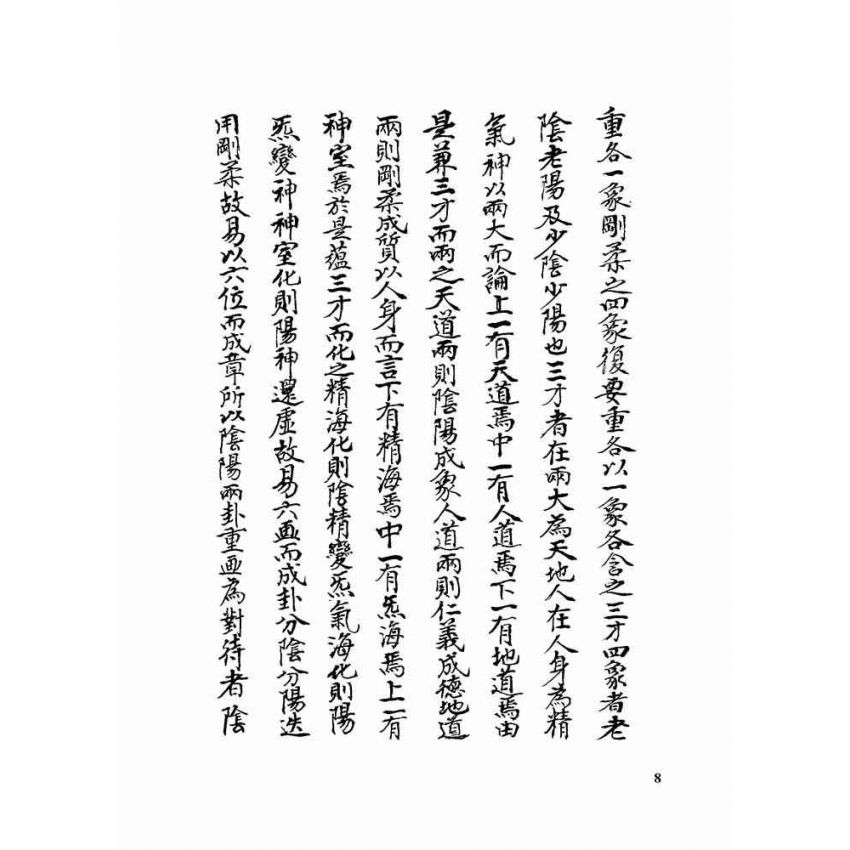 重各一象剛柔之四象復要重各以一象各含之三才四象者老
陰老陽及少陰少陽也三才者在兩大為天地人在人身為精
氣神以兩大而論上一有天道焉中一有人道焉下一有地道焉由
是兼三才而兩之天道兩則陰陽成象人道兩則仁義成德地道
兩則剛柔成質以人身而言下有精海焉中一有炁海焉上一有
神室焉於是蘊三才而化之精海化則陰精變炁氣海化則陽
炁變神神室化則陽神還虛故易六画而成卦分陰分陽迭
用剛柔故易以六位而成章所以陰陽兩卦重画為對待者陰
8